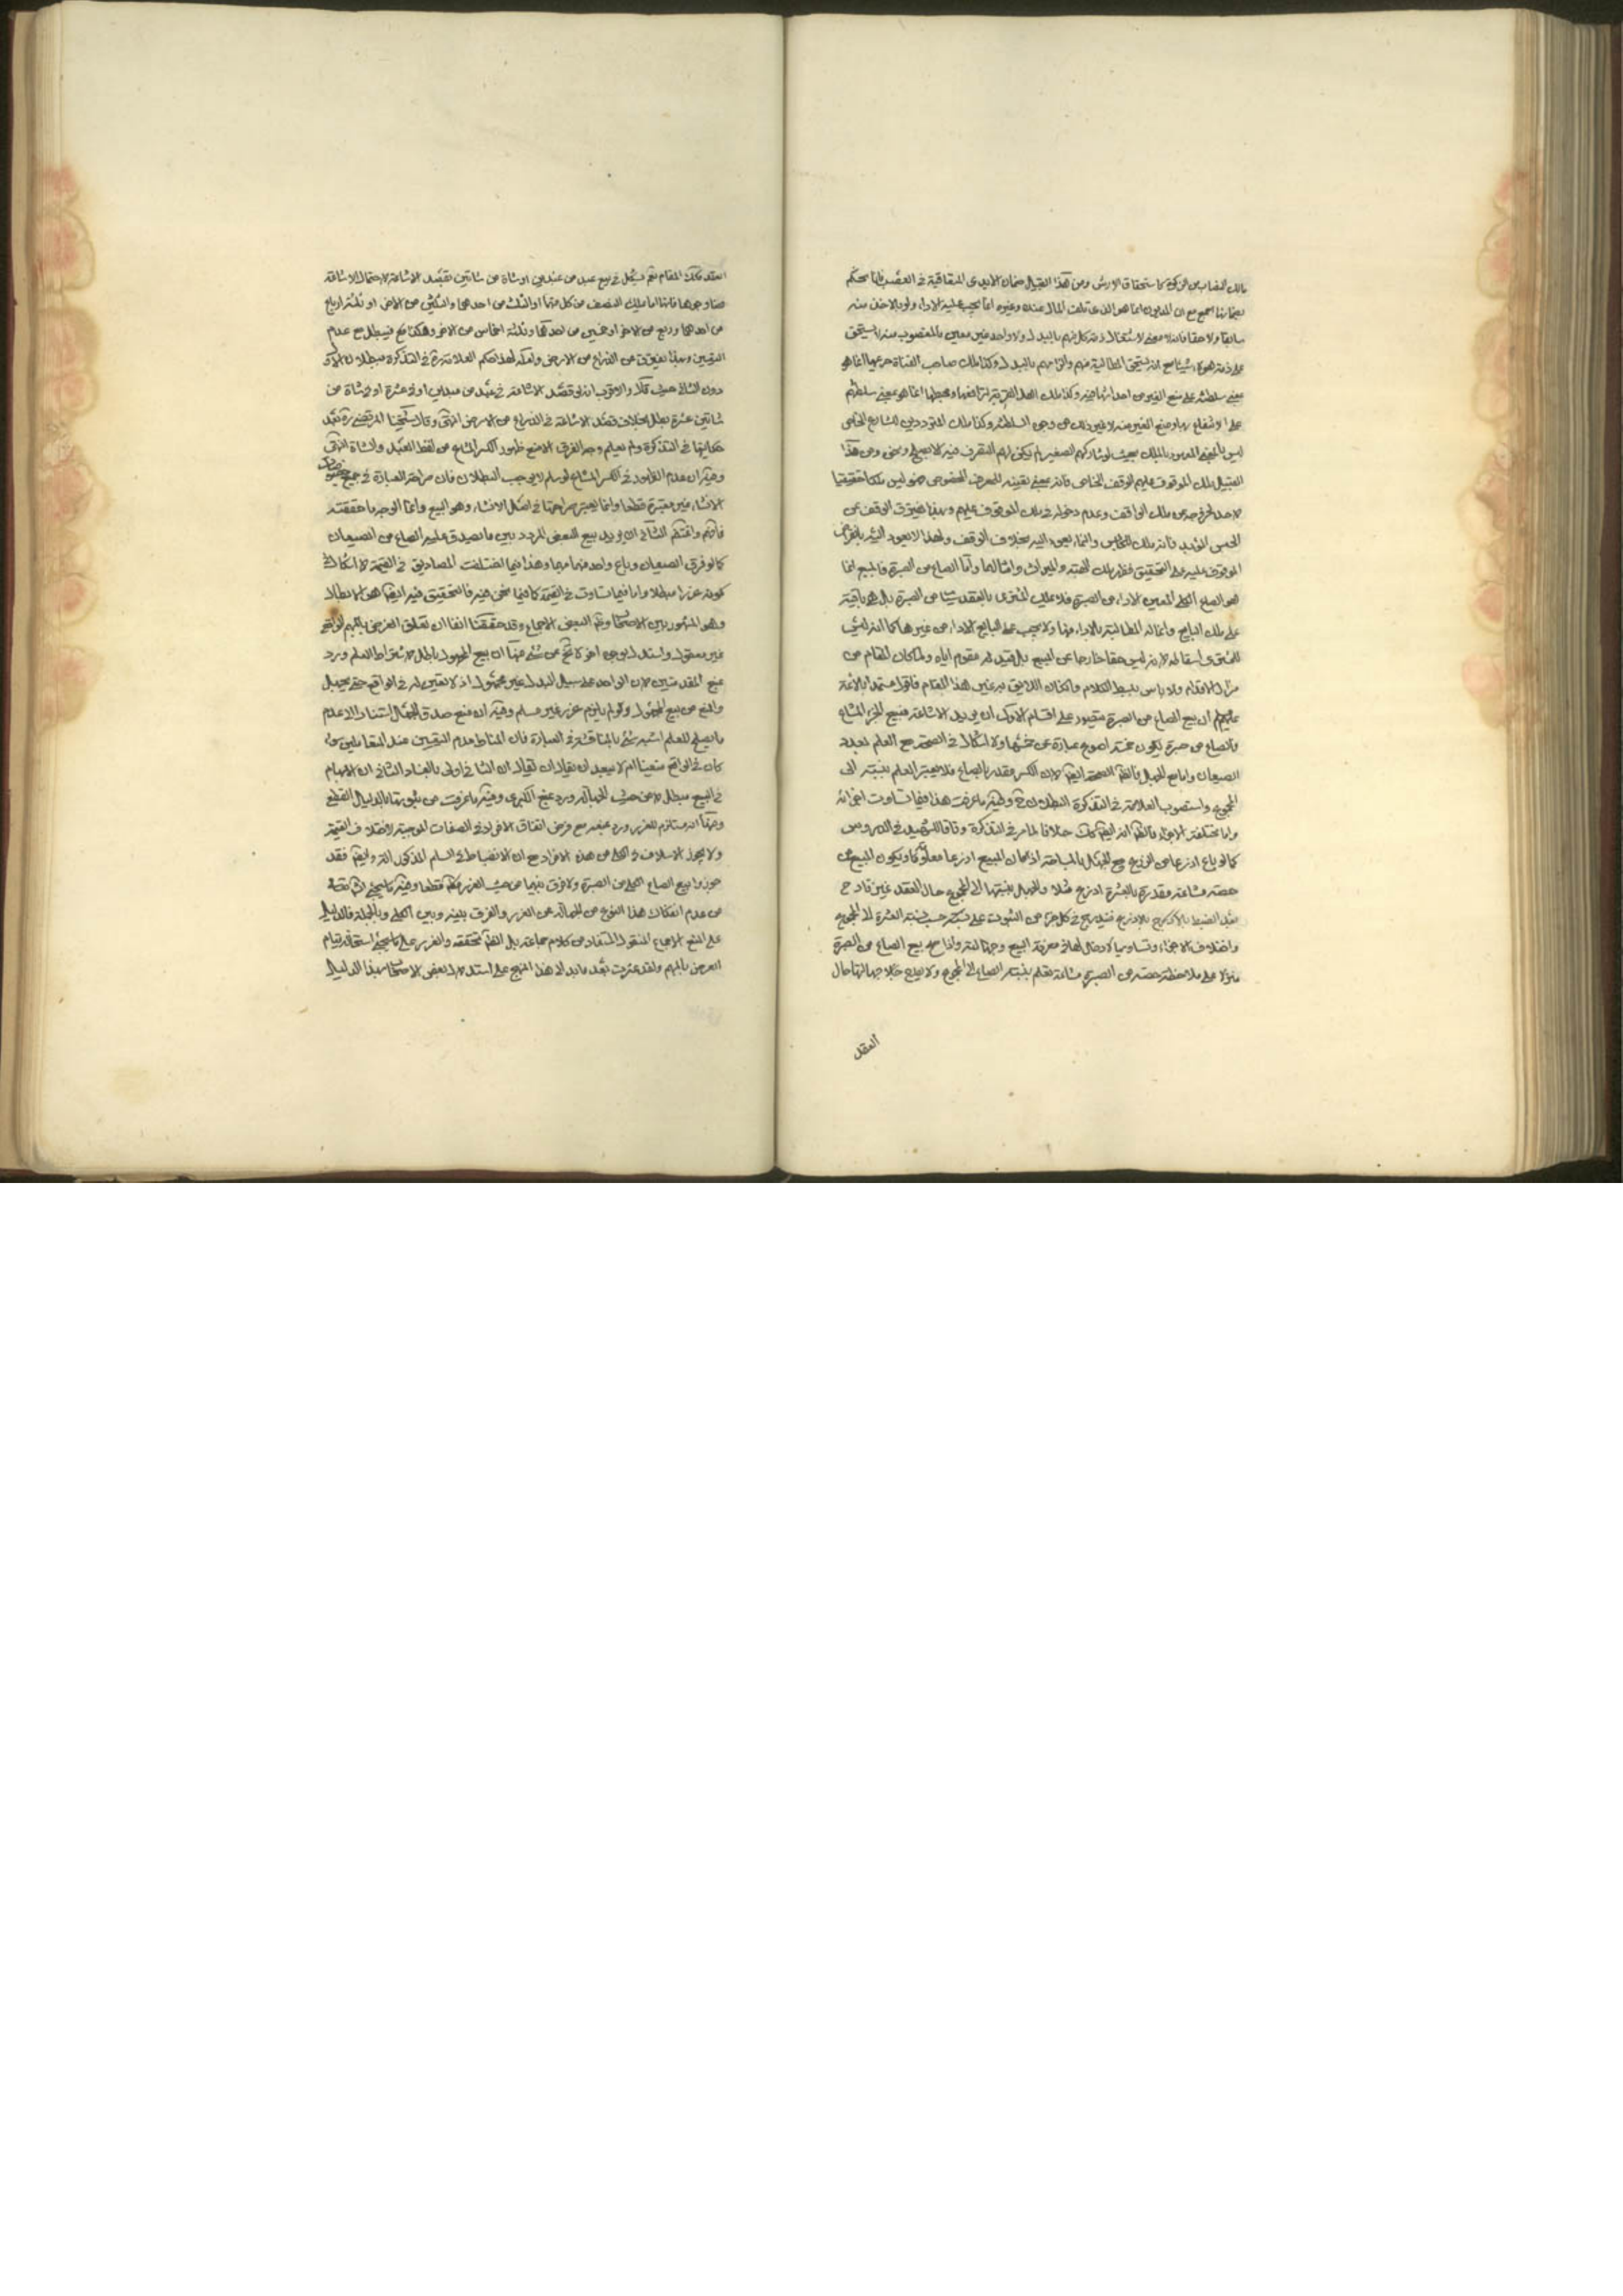 مالك النصاب من الزكوة كاستحقاق الارش ومن هذا القبيل ضمان الايدى المتعاقبة في الغصب فانا نحكم
بضمانها اجمع مع ان المديون انما هو الذى تلف المال عنده وغيره انما يجب عليه الاداء ولو بالاخذ منه
سابقا ولاحقا فانه لا معنى لاشتغال ذمة كل منهم بالبدل ولا واحد غير معين بالمغصوب منه يستحق
على ذمة شيئا مع انه يستحق المطالبة منهم والزامهم بالبدل وكذا ملك صاحب القناة حريمها انما هو
بمعنى سلطنته على منع الغير من احداث فيه وكذا ملك اهل القرية لمرافقها ومحيطها انما هو بمعنى سلطنتهم
على الانتفاع بها ومنع الغير منه لا غير ذلك من وجوه السلطنة وكذا ملك المترددين للشارع الخاص
ليس بالمعنى المعهود بالملك بحيث لو شاركهم الصغير لم يكن لهم التصرف فيه الا بصلح ونحو ومن هذا
القبيل ملك الموقوف عليهم الوقف الخاص فانه بمعنى تعينه للصرف المخصوص وليس ملكا حقيقيا
لاحد لخروجه عن ملك الواقف وعدم دخوله في ملك الموقوف عليهم وبهذا يفترق الوقف عن
الحبس المؤبد فانه ملك للحابس والنماء يعود اليه بخلاف الوقف ولهذا لا يعود اليه بانقراض
الموقوف عليه على التحقيق فنظير ملك الهبة والميراث وامثالهما واما الصاع من الصبرة فالمبيع انما
هو الصاع الكلى المعين الاداء من الصبرة فلا يملك المشترى بالعقد شيئا من الصبرة بل هو باقية
على ملك البايع وانما له المطالبة بالاداء منها ولا يجب على البايع الاداء من غيرها كما انه ليس
للمشترى اسقاطه لانه ليس حقا خارجا عن المبيع بل قيد له مقوم اياه ولما كان المقام من
مزال الاقدام ولا باس ببسط الكلام وان كان اللايق به غير هذا المقام فاقول مستمدا بالائمة
عليهم ان بيع الصاع من الصبرة يتصور على اقسام الاول ان يريد الاشاعة فيبيع الجزء المشاع
فالصاع من صبرة يكون خمسة اصوع عبارة عن خمسها ولا اشكال في الصحة مع العلم بعدد
الصيعان واما مع الجهل فالظاهر الصحة ايضا لان الكسر مقدر بالصاع فلا يعتبر العلم بنسبته الى
المجموع واستصوب العلامة في التذكرة البطلان وفيه ما عرفت هذا فيما تساوت اجزائه
واما مختلفة الاجزاء فالظاهر انه ايضا كذلك خلافا لما مر في التذكرة وفاقا للشهيد في الدروس
كما لو باع اذرعا من الذرع مع الجهل بالمساحة اذا كان المبيع اذرعا معلومة كان ويكون المبيع
حصة مشاعة مقدرة بالعشرة اذرع مثلا والجهل بنسبتها الى المجموع حال العقد غير قادح
بعد الضبط بالاذرع فيندرج في كل جزء من الثبوت على حسب نسبة العشرة الى المجموع
واختلاف الاجزاء وتساويها لا دخل لها في معرفة المبيع وجهالته واذا صح بيع الصاع من الصبرة
منزلا على ملاحظة حصة من الصبرة مشاعة تعلم بنسبة الصاع الى المجموع ولا يقدح جهالتها حال
العقد
العقد فكذلك المقام نعم يشكل في بيع عبد من عبدين او شاة من شاتين بقصد الاشاعة لاحتمال الاشاعة
هنا وجوها فانه اما ملك النصف من كل منهما او الثلث من احدهما والثلثين من الاخر او ثلثة ارباع
من احدهما وربع من الاخر او خمسين من احدهما وثلثة اخماس من الاخر وهكذا فيبطل مع عدم
التعيين وبهذا يفترق عن الذراع من الارض ولعله لهذا حكم العلامة في التذكرة ببطلان الاول
دون الثانى حيث قال والاقرب انه لو قصد الاشاعة في عبد من عبدين او في عشرة او في شاة من
شاتين عشرة بطل بخلاف قصد الاشاعة في الذراع من الارض انتهى وقال شيخنا المرتضى ره بعد
حكايتها في التذكرة ولم يعلم وجه الفرق الا منع ظهور الكسر المشاع من لفظ العبد والشاة انتهى
وفيه ان عدم الظهور في الكسر المشاع لو سلم لا يوجب البطلان فان صراحة العبارة في جميع خصوصيات
الانشاء غير معتبرة قطعا وانما يعتبر صراحتها في اصل الانشاء وهو البيع وانما الوجه ما حققته
فافهم والقسم الثانى ان يريد بيع البعض المردد بين ما يصدق عليه الصاع من الصيعان
كما لو فرق الصيعان وباع واحد منها مبهما وهذا فيما اختلفت المصاديق في القيمة لا اشكال في
كونه غررا مبطلا واما فيما تساوت في القيمة كما فيما نحن فيه فالتحقيق فيه ايضا هو الابطال
وهو المشهور بين الاصحاب ونقل البعض الاجماع وقد حققنا انفا ان تعلق الغرض بالمبهم الواقعى
غير معقول واستدل بوجوه اخر لا تخ عن شئ منها ان بيع المجهول باطل لاشتراط العلم ورد
بمنع المقدمتين لان الواحد على سبيل البدل غير مجهول اذ لا تعين له في الواقع حتى يجهل
والمنع من بيع المجهول ولو لم يلزم غرر غير مسلم وفيه ان منع صدق الجهالة استنادا الى عدم
ما يصلح للعلم اشبه شئ بالمناقشة في العبارة فان المناط عدم التعيين عند المتعاملين سواء
كان في الواقع متعينا ام لا بل يبعد ان يقال ان الثانى اولى بالفساد الثانى ان الابهام
في البيع مبطل لا من حيث الجهالة ورد بمنع الكبرى وفيه ما عرفت من ثبوتها بالدليل القطعى
ومنها انه مستلزم للغرر ورد بمنعه مع فرض اتفاق الافراد في الصفات الموجبة لاختلاف القيمة
ولا يجوز الاسلاف في الكلى من هذه الافراد مع ان الانضباط في السلم اكد وايضا فقد
جوزوا بيع الصاع الكلى من الصبرة ولا فرق بينهما من حيث الغرر قطعا وفيه ما يجئ انشاء
من عدم انفكاك هذا النوع من الجهالة عن الغرر والفرق بينه وبين الكلى وبالجملة فالدليل
على المنع الاجماع المنقول المستفاد من كلام جماعة بل الظاهر تحققه والغرر على ما يجئ استحالة قيام
الغرض بالمبهم ولقد عثرت بعد ما بدا لى هذا النهج على استدلال بعض الاصحاب بهذا الدليل